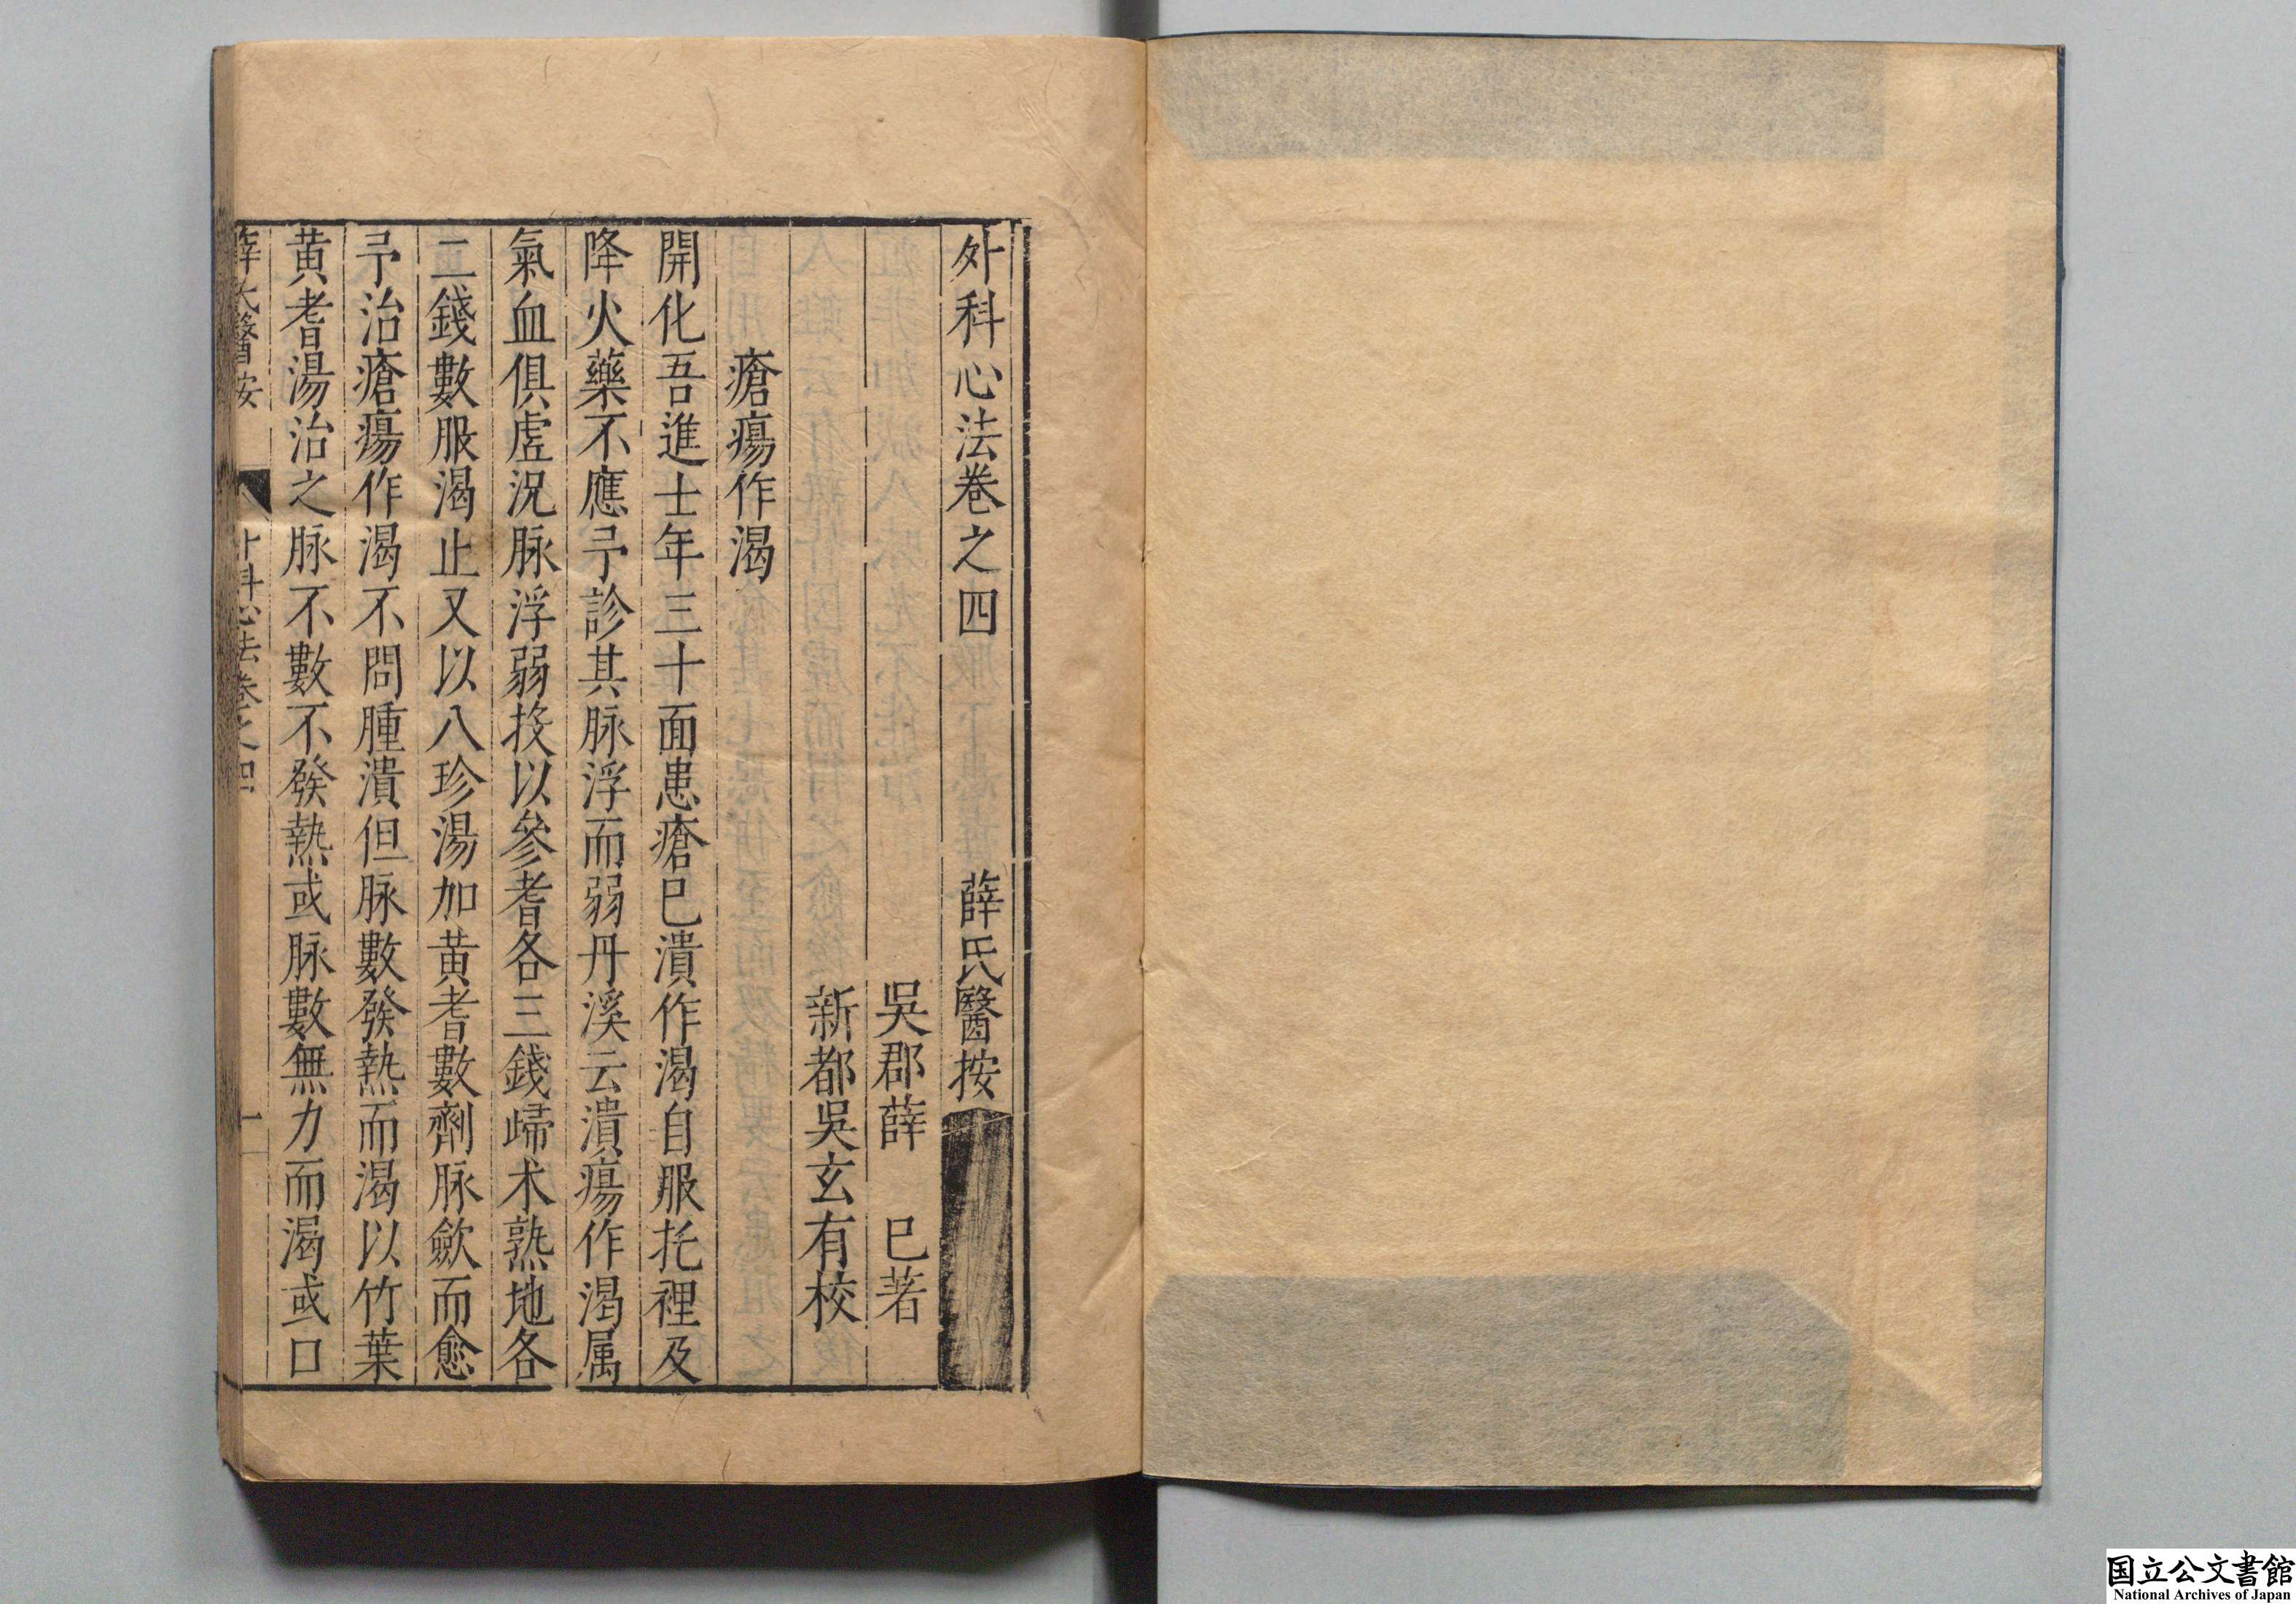 外科心法卷之四 薛氏醫按
吳郡薛 巳著
新都吳玄有校
瘡瘍作渴
開化吾進士年三十面患瘡巳潰作渴自服托裡及
降火藥不應予診其脉浮而弱丹溪云潰瘍作渴属
氣血俱虗況脉浮弱投以參耆各三錢歸术熟地各
二錢數服渴止又以八珍湯加黄耆數劑脉歛而愈
予治瘡瘍作渴不問腫潰但脉數發熱而渴以竹葉
黄耆湯治之脉不數不發熱或脉數無力而渴或口
薛氏醫按 外科心法卷之四 一
国立公文書館
National Archives of Japan